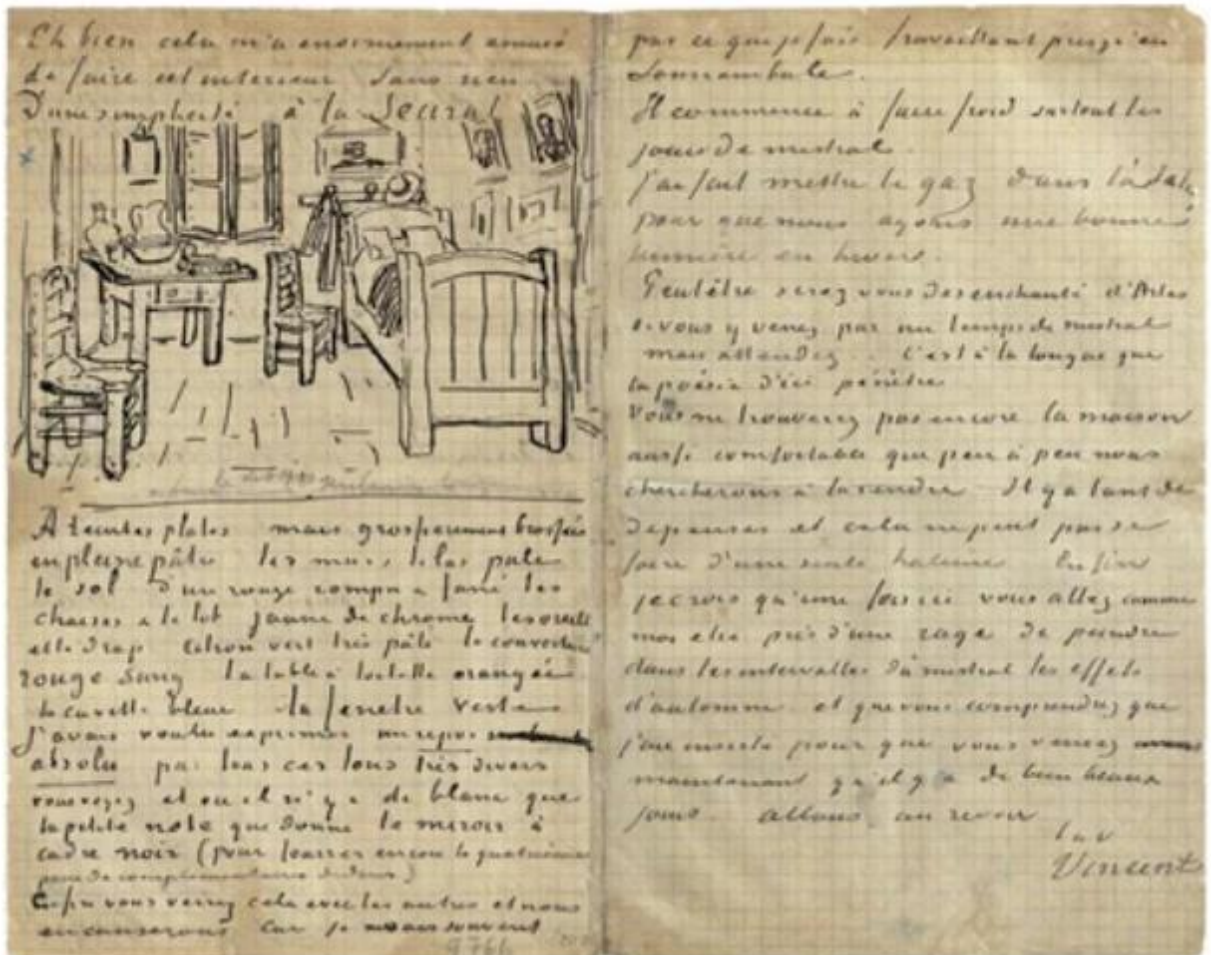 Eh bien cela m'a enormement amusé
de faire cet interieur sans rien
D'une simplicité à la Seurat
À teintes plates mais grossierement brossées
en pleine pâte les murs lilas pale
le sol d'un rouge rompu & fané les
chaises & le lit jaune de chrome les oreillers
et le drap citron vert très pâle la couverture
rouge sang la table à toilette orangée
la cuvette bleue la fenetre verte
J'avais voulu exprimer un repos
absolu par tous ces tons très divers
vous voyez et où il n'y a de blanc que
la petite note que donne le miroir à
cadre noir (pour fourrer encore la quatrième
paire de complementaires dedans)
Enfin vous verrez cela avec les autres et nous
en causerons car je ne sais souvent
9766
pas ce que je fais travaillant presqu'en
somnambule.
Il commence à faire froid surtout les
jours de mistral.
J'ai fait mettre le gaz dans l'
pour que nous ayons une bonne
lumière en hiver.
Peutêtre serez vous desenchanté d'Arles
si vous y venez par un temps de mistral
mais attendez.. C'est à la longue que
la poésie d'ici pénètre
Vous ne trouverez pas encore la maison
aussi comfortable que peu à peu nous
chercherons à la rendre Il y a tant de
depenses et cela ne peut pas se
faire d'une seule haleine Enfin
je crois qu'une fois ici vous allez comme
moi etre pris d'une rage de peindre
dans les intervalles du mistral les effets
d'automne et que vous comprendrez que
j'aie insisté pour que vous veniez
maintenant qu'il y a de bien beaux
jours. allons, au revoir
t. à v
Vincent